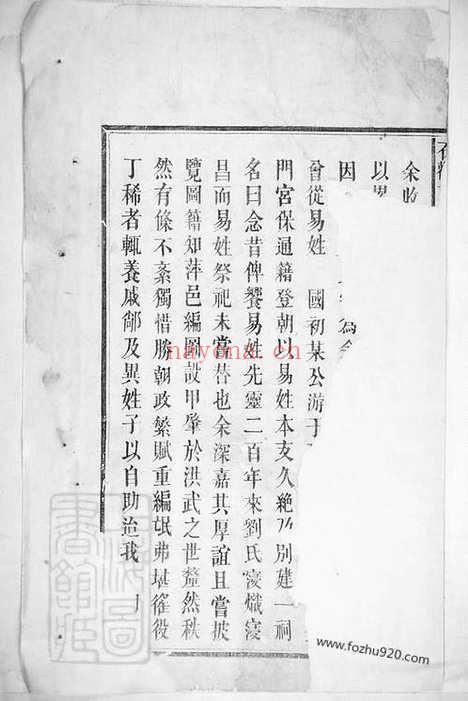 余收
以異
因
曾從易姓　國初某公游于
門宮保通籍登朝以易姓本支久絶乃別建一祠
名曰念昔俾饗易姓先靈二百年來劉氏寖熾寖
昌而易姓祭祀未嘗替也余深嘉其厚誼且嘗披
覽圖籍知萍邑編圖設甲肇於洪武之世釐然秩
然有條不紊獨惜勝朝政繁賦重編氓弗堪徭役
丁稀者輒養戚鄰及異姓子以自助迨我
nayona.cn
www.fozhu920.com